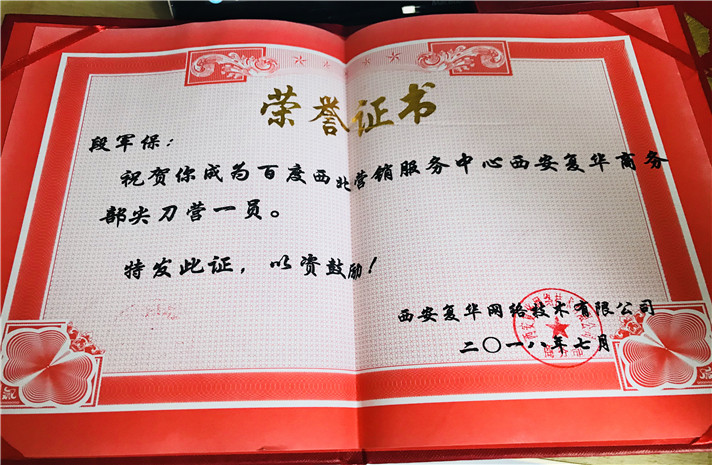 荣誉证书
段军保：
祝贺你成为百度西北营销服务中心西安复华商务
部尖刀营一员。
特发此证，以资鼓励！
西安复华网络技术有限公司
二〇一八年七月